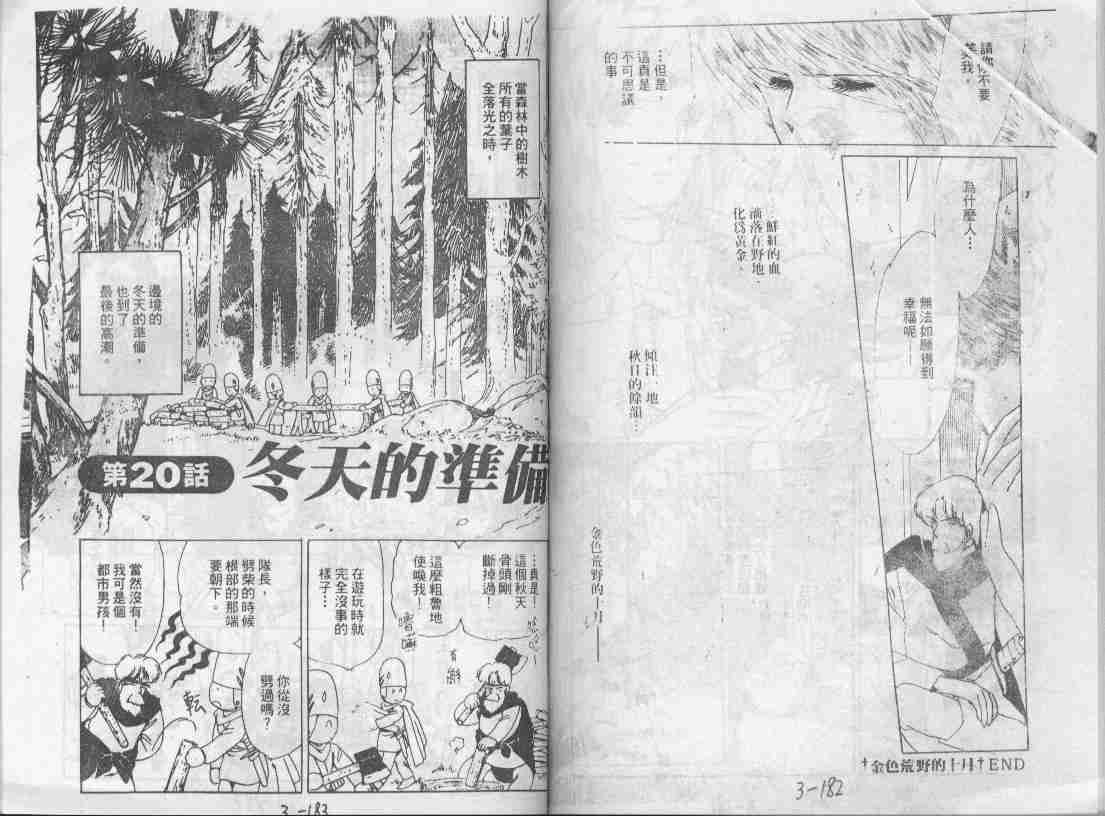 請你不要
笑我，
…但是，
這真是
不可思議
的事
為什麼人…
無法如願得到
幸福呢——
…鮮紅的血
滴落在野地．
化為黃金．
傾注．地
秋日的餘韻…
金色荒野的十月——
†金色荒野的十月†END
3-182
當森林中的樹木
所有的葉子
全落光之時，
邊境的
冬天的準備，
也到了
最後的高潮。
第20話
冬天的準備
…真是！
這個秋天
骨頭剛
斷掉過！
這麼粗魯地
使喚我！
在遊玩時就
完全沒事的
樣子…
隊長，
劈柴的時候
根部的那端
要朝下。
你從沒
劈過嗎？
轉
當然沒有！
我可是個
都市男孩！
3-183